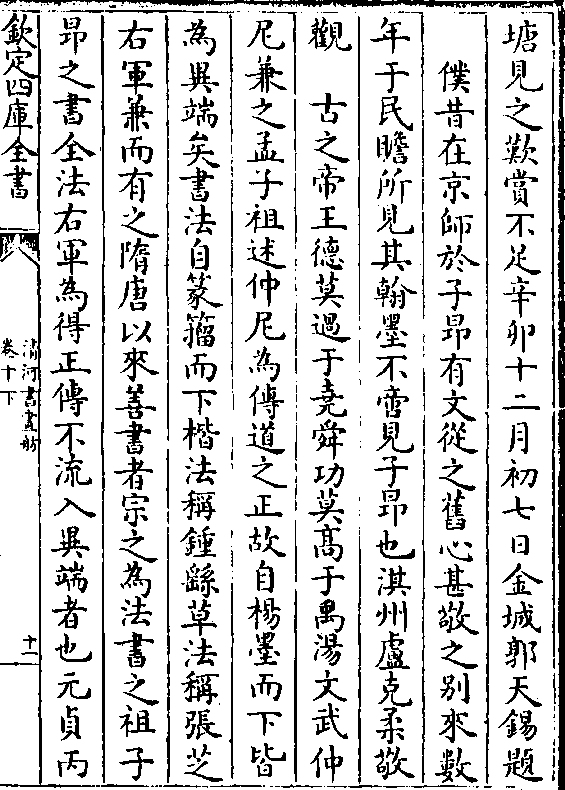 塘見之歎賞不足辛卯十二月初七日金城郭天錫題
僕昔在京師於子昂有文從之舊心甚敬之别來數
年于民瞻所見其翰墨不啻見子昂也淇州盧克柔敬
觀　古之帝王德莫過于堯舜功莫髙于禹湯文武仲
尼兼之孟子祖述仲尼為傳道之正故自楊墨而下皆
為異端矣書法自篆籀而下楷法稱鍾繇草法稱張芝
右軍兼而有之隋唐以來善書者宗之為法書之祖子
昂之書全法右軍為得正傳不流入異端者也元貞丙
欽定四庫全書
清河書畫舫
卷十下
十二